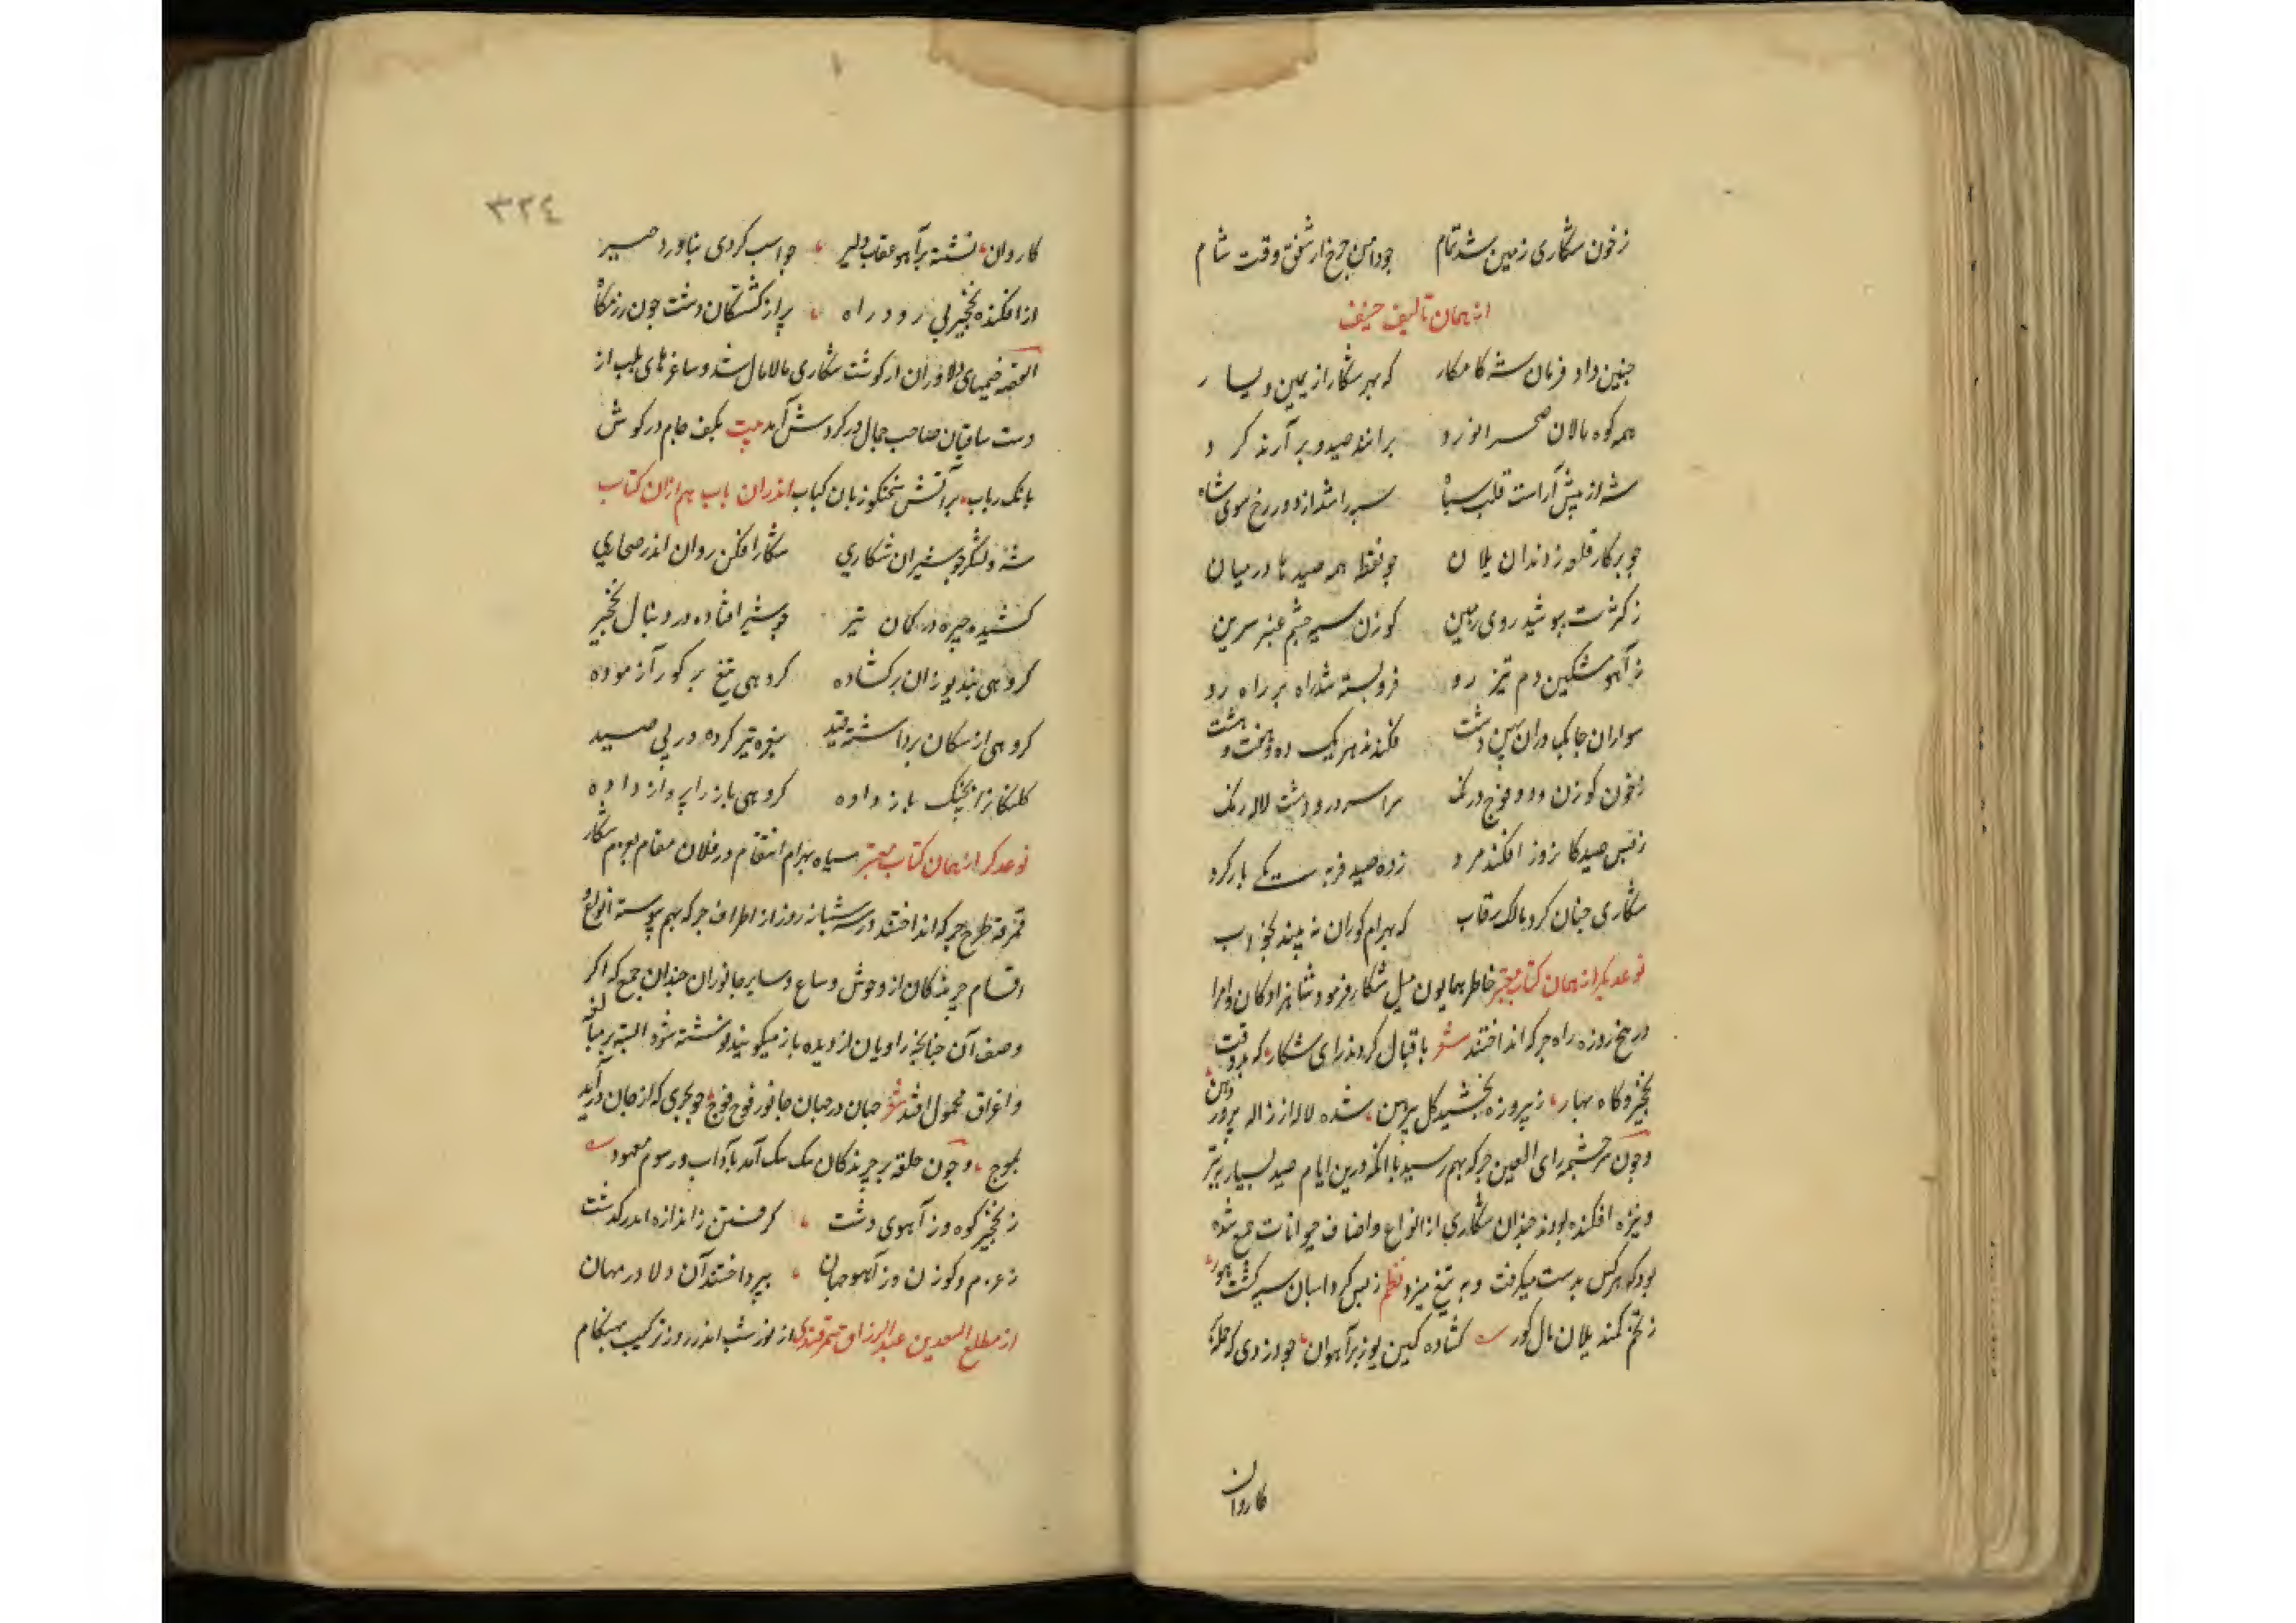 زخون شکاری زمین شد تمام جو دامن جرخ از شفق وقت شام
از همان تالیف حنیف
جنین داد فرمان شه کامکار که بهر شکار از یمین و یسار
همه کوه مالان صحرا نورد برانند صید و برآرند کرد
شه از پیش آراست قلب سپاه سپه را شد از دور رخ سوی شاه
جو برکار قلعه زدند آن یلان جو نقطه همه صیدها در میان
ز کثرت بپوشید روی زمین کوزن سیه جشم عنبر سرین
ز آهو مشکین دم تیز رو فروبسته شد راه بر راه رو
سواران جابک دران بهن دشت فکندند هر یک ده و هفت و هشت
زخون کوزن و دد و فوج رنک سراسر در و دشت لاله رنک
زبس صید کان روز افکند مرد زده صید فربه یکی بار کرد
شکاری جنان کرد مالک رقاب که بهرام کوران نه بیند بخواب
نوعدیکر از همان کتاب معتبر خاطر همایون میل شکار فرمود شاهزادکان و امرا
در پنج روزه راه جرکه انداختند شعر باقبال کردند رای شکار که بد وقت
نخجیر و کاه بهار ز پیروزه بخشید کل پیرهن شده لاله از ژاله پرور دهن
و جون سرجشمه رای العین جرکه بهم رسید با انکه درین ایام صید بسیار به تیر
و نیزه افکنده بودند جندان شکاری از انواع و اصناف حیوانات جمع شده
بود که هرکس بدست میکرفت و به تیغ میزد نظم زبس کرد اسبان سیه کشت هور
ز خم کمند یلان یال کور کشاده کمین یوز بر آهوان جو دزدی که حمله
کاروان
٣٢٤
کاروان نشسته بر آهو عقاب دلیر جو اسب کردی بناورد جیر
از افکنده نخجیر بی رود راه پر از کشتکان دشت جون رزمکاه
القصه خیمهای دلاوران از کوشت شکاری مالامال شد و ساغرهای لبالب از
دست ساقیان صاحب جمال در کردش آمد بیت بکف جام در کوش
بانک رباب بر آتش سخنکو زبان کباب اندران باب هم ازان کتاب
شه و لشکر جو شیران شکاری شکار افکن روان اندر صحاری
کشیده جیره در کمان تیر جو شیر افتاده در دنبال نخجیر
کروهی بند یوزان برکشاده کروهی تیغ بر کور آزموده
کروهی از سکان برداشته قید بغره تیز کرده در پی صید
کلنکانرا بجنک باز داده کروهی باز را پرواز داده
نوعدکر از همان کتاب معتبر سپاه بهرام انتقام در فلان مقام بعزم شکار
قمرغه طرح جرکه انداختند و در سه شبانه روز از اطراف جرکه بهم پیوسته انواع
و اقسام جرندکان از وحوش و سباع و سایر جانوران جندان جمع که اکر
وصف آن جنانجه راویان از دیده باز میکویند نوشته شود البته بر مبالغه
و اغراق محمول افتد شعر جهان در جهان جانور فوج فوج جو بحری که از جان درآید
بموج و جون حلقه بر جرندکان تنک تنک آمد باداب و رسوم معهود
ز نخجیر کوه و ز آهوی دشت کرفتن ز اندازه اندر کذشت
ز غرم و کوزن و ز آهو جهان بپرداختند آن دلاور مهان
از مطلع السعدین عبد الرزاق سمرقندی از نوز شب اندر روز ترکیب هنکام